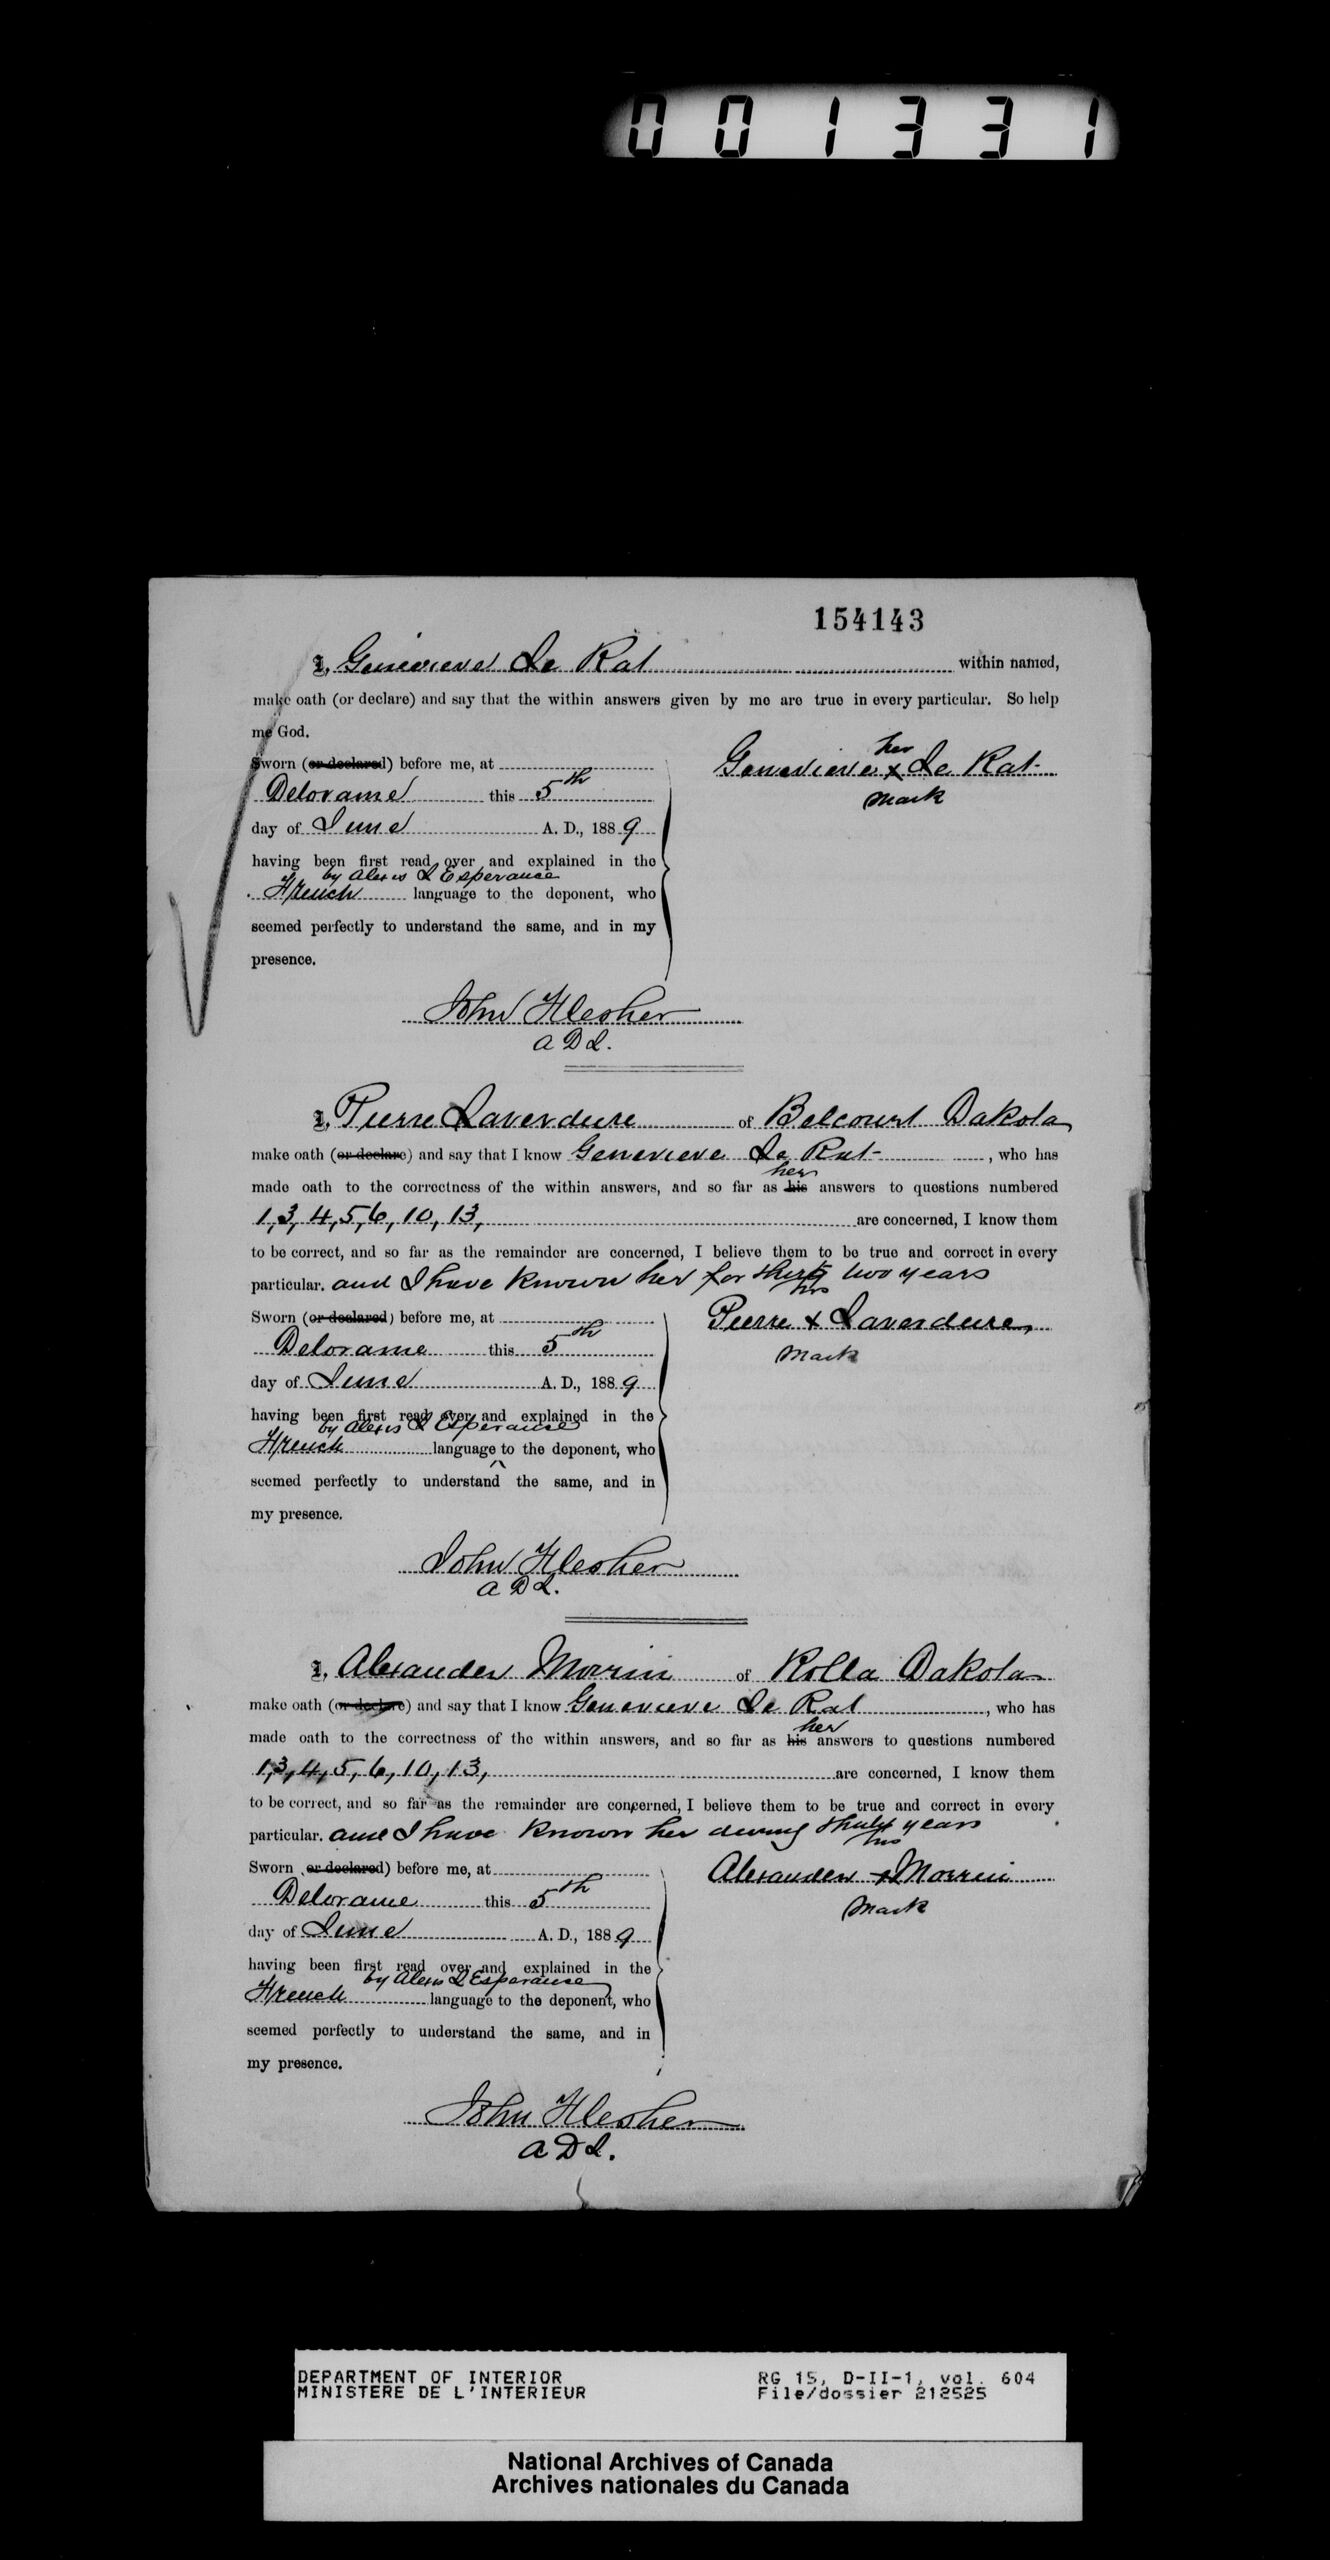 001331
154143
I, Genevieve Le Rat within named,
make oath (or declare) and say that the within answers given by me are true in every particular. So help
me God.
her
Sworn (or declared) before me, at
Genevieve x Le Rat
Deloraine this 5th
mark
day of June A. D., 1889
having been first read over and explained in the
by Alexis L'Esperance
French language to the deponent, who
seemed perfectly to understand the same, and in my
presence.
John Flesher
A D L.
I, Pierre Laverdure of Belcourt Dakota
make oath (or declare) and say that I know Genevieve Le Rat, who has
her
made oath to the correctness of the within answers, and so far as his answers to questions numbered
1, 3, 4, 5, 6, 10, 13, are concerned, I know them
to be correct, and so far as the remainder are concerned, I believe them to be true and correct in every
particular. and I have known her for thirty two years
his
Sworn (or declared) before me, at
Pierre x Laverdure
Deloraine this 5th
mark
day of June A. D., 1889
having been first read over and explained in the
by Alexis L'Esperance
French language to the deponent, who
seemed perfectly to understand the same, and in
my presence.
John Flesher
A D L.
I, Alexander Morrin of Rolla Dakota
make oath (or declare) and say that I know Genevieve Le Rat, who has
her
made oath to the correctness of the within answers, and so far as his answers to questions numbered
1, 3, 4, 5, 6, 10, 13, are concerned, I know them
to be correct, and so far as the remainder are concerned, I believe them to be true and correct in every
particular. and I have known her during thirty years
his
Sworn (or declared) before me, at
Alexander x Morrin
Deloraine this 5th
mark
day of June A. D., 1889
having been first read over and explained in the
by Alexis L'Esperance
French language to the deponent, who
seemed perfectly to understand the same, and in
my presence.
John Flesher
A D L.
DEPARTMENT OF INTERIOR RG 15, D-II-1, vol. 604
MINISTERE DE L'INTERIEUR File/dossier 212525
National Archives of Canada
Archives nationales du Canada